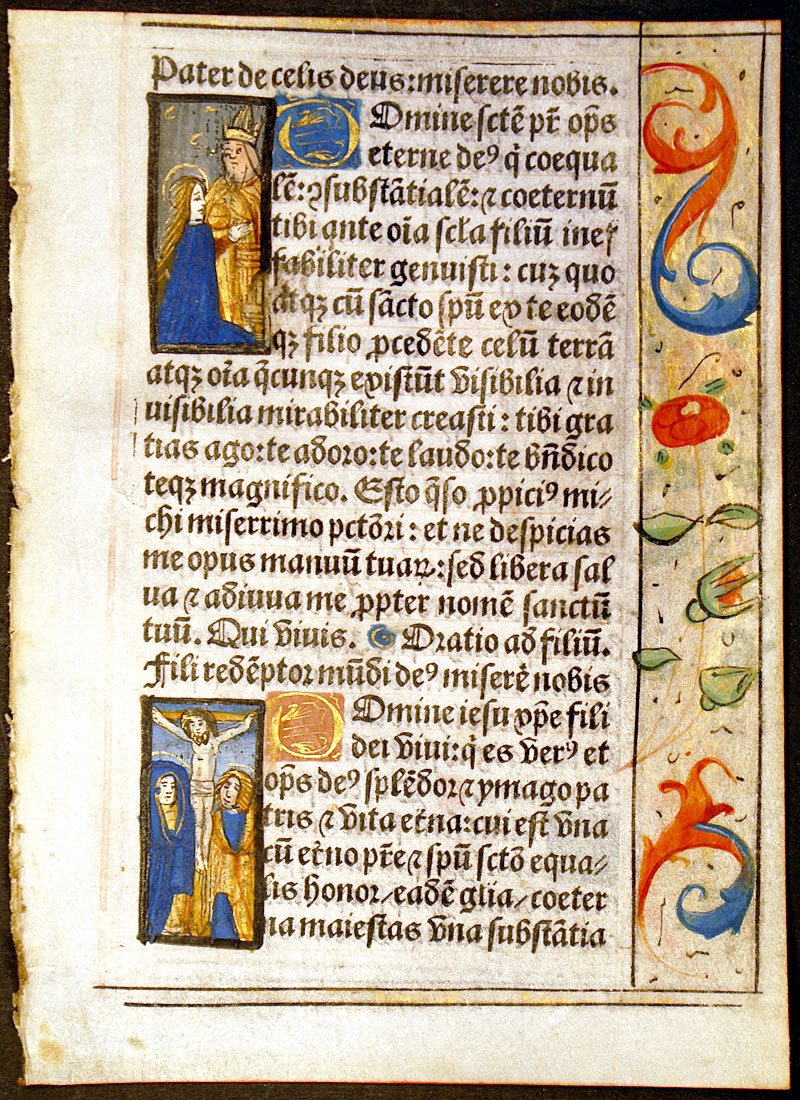 Pater de celis deus: miserere nobis.
Domine sctē pr̄ op̄s
eterne deꝰ q̇ coequa
lē: ꝯsubstātialē: ⁊ coeternū
tibi ante oīa scl̄a filiū inef
fabiliter genuisti: cuꝫ quo
atqꝫ cū sācto spū ex te eodē
qꝫ filio ꝓcedēte celū terrā
atqꝫ oīa q̄cunqꝫ existūt visibilia ⁊ in
uisibilia mirabiliter creasti: tibi gra
tias ago: te adoro: te laudo: te bn̄dico
teqꝫ magnifico. Esto q̄so ꝓpiciꝰ mi⸗
chi miserrimo pctōri: et ne despicias
me opus manuū tuaꝝ: sed libera sal
ua ⁊ adiuua me ꝓpter nomē sanctū
tuū. Qui viuis. Oratio ad filiū.
Fili redēptor mūdi deꝰ miserē nobis
Domine iesu xp̄e fili
dei viui: q̇ es verꝰ et
op̄s deꝰ splēdor ⁊ ymago pa
tris ⁊ vita et̄na: cui est vna
cū et̄no pr̄e ⁊ spū sctō equa⸗
lis honor/ eadē gl̄ia/ coeter
na maiestas vna substātia